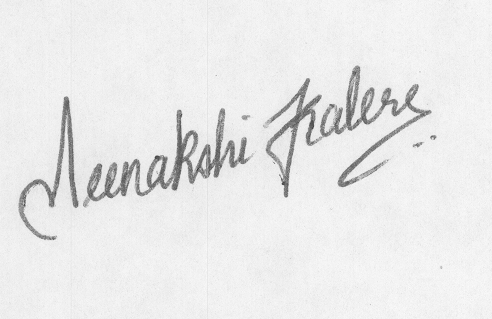 Meenakshi Kalere